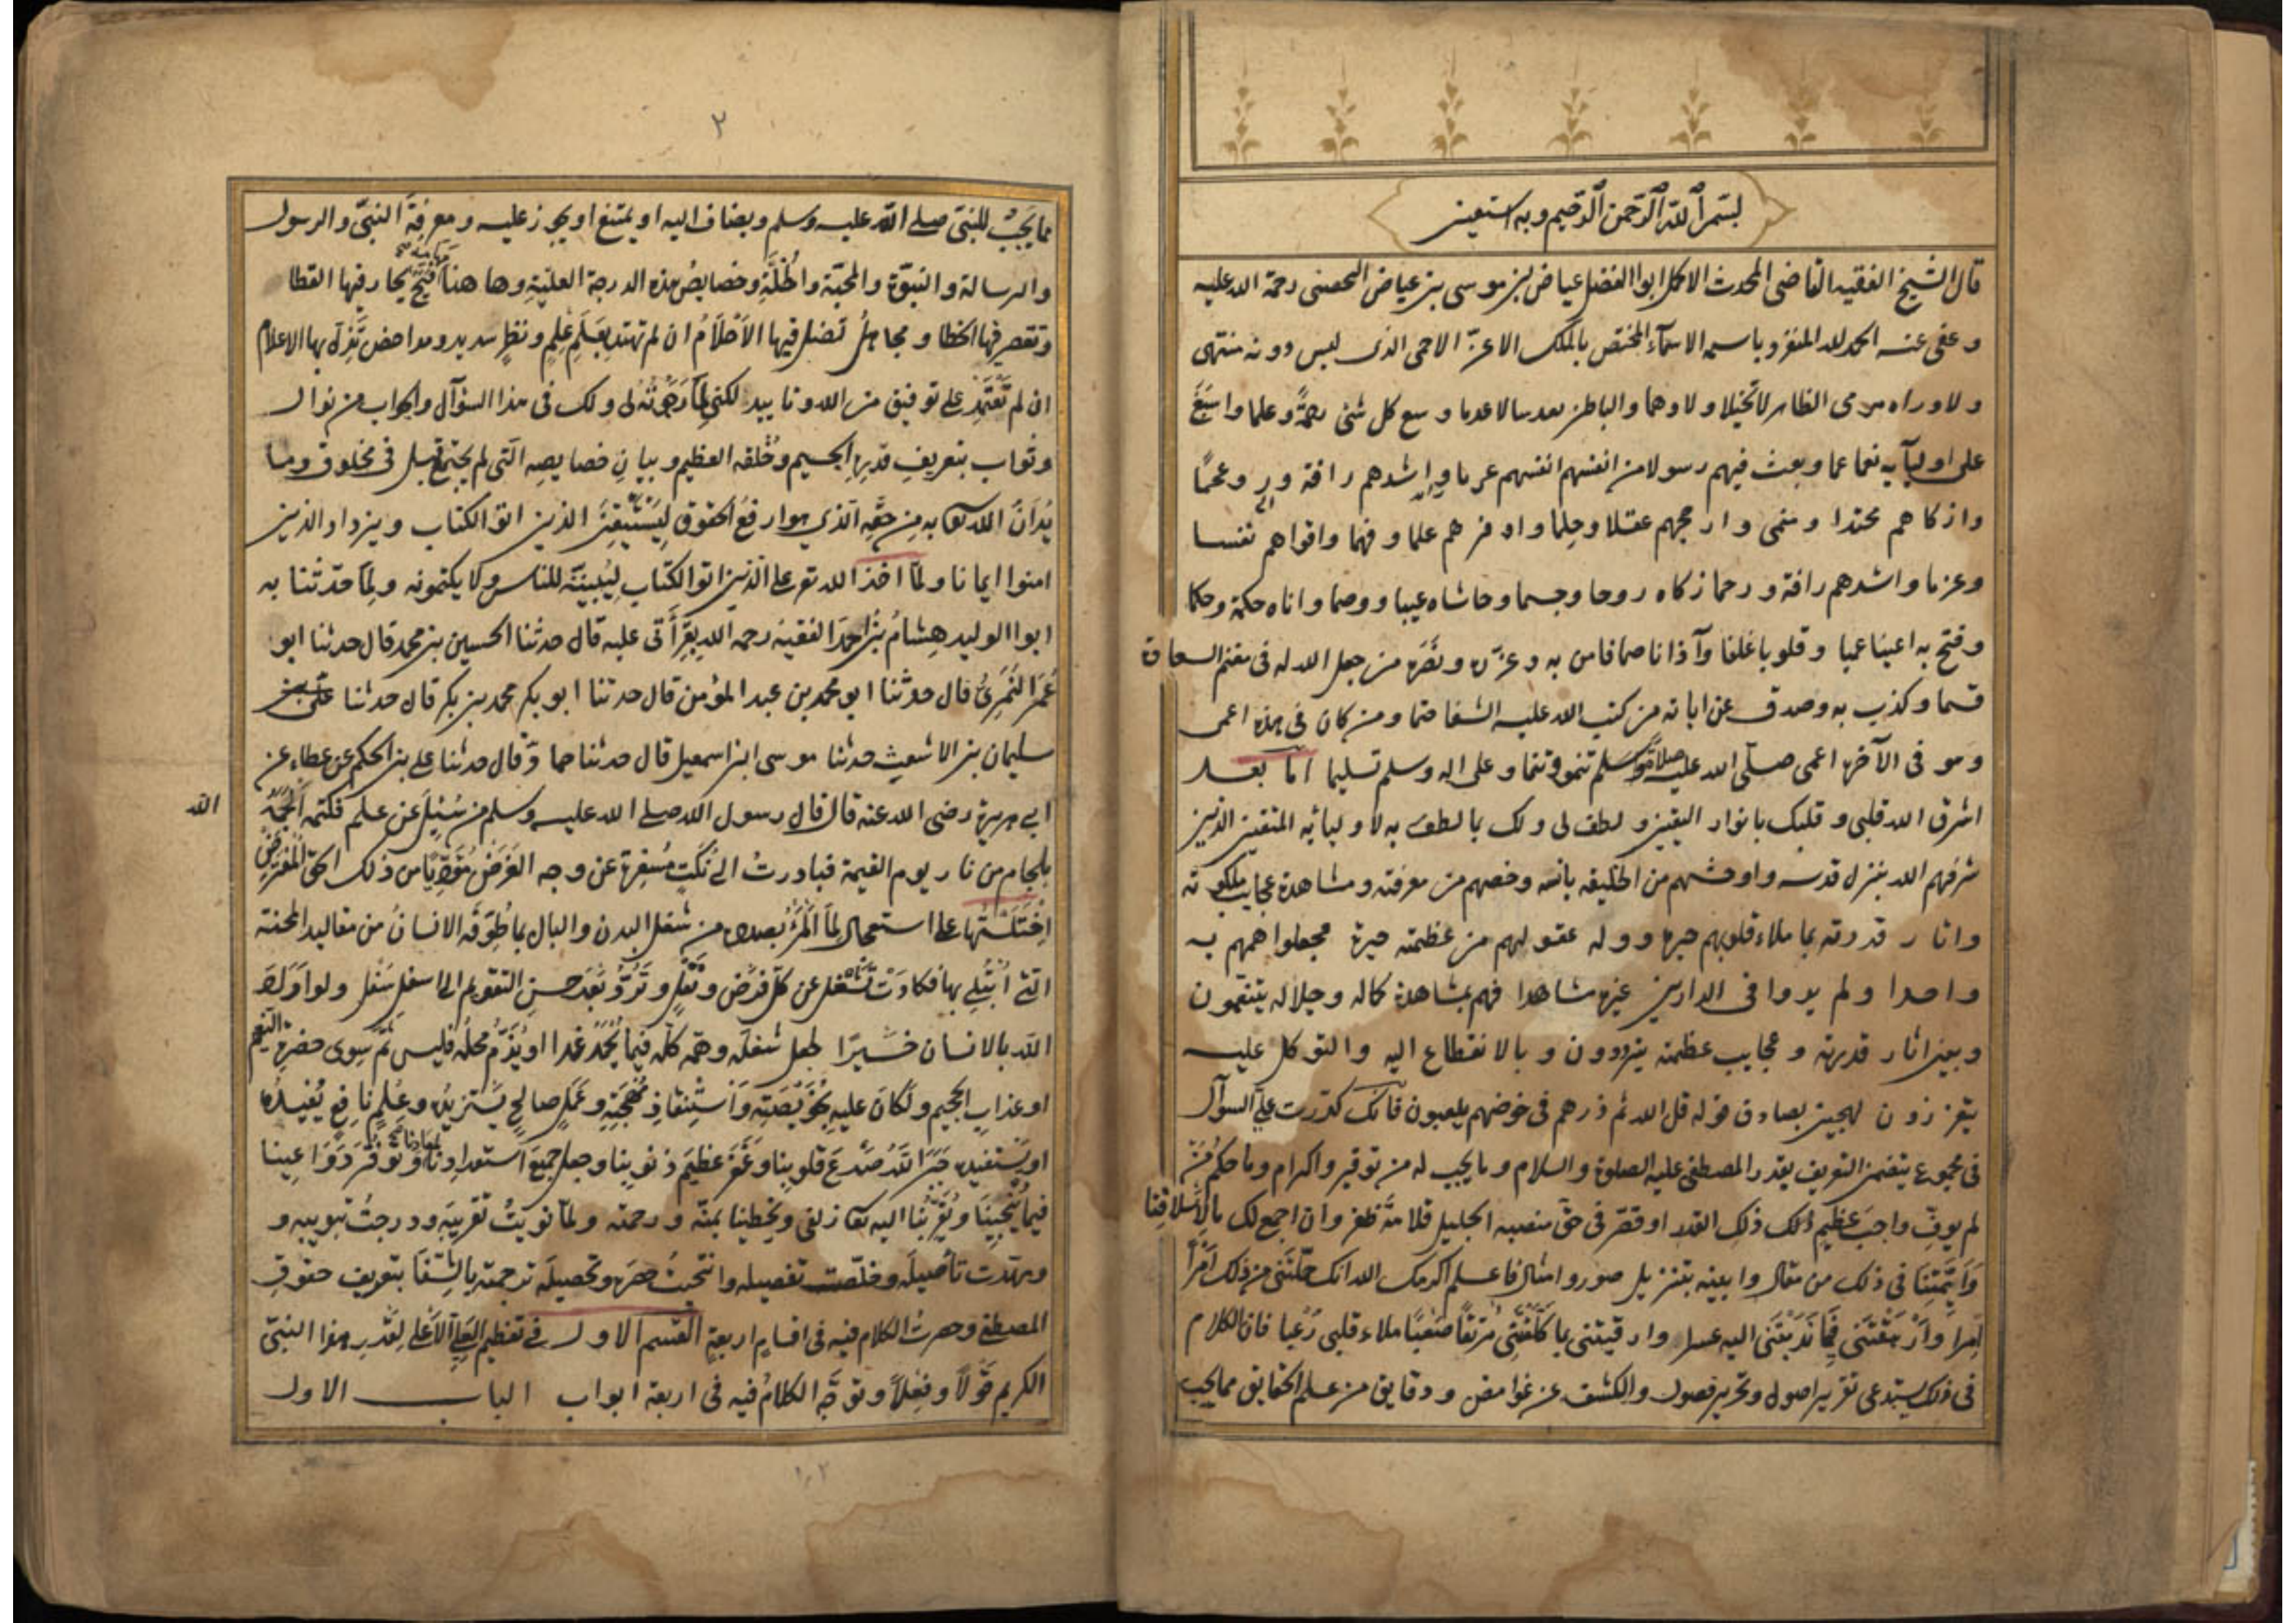 بسم الله الرحمن الرحيم وبه استعين
قال الشيخ الفقيه القاضى المحدث الاكمل ابوا الفضل عياض بن موسى بن عياض اليحصبى رحمة الله عليه
وعفى عنه الحمد لله المنفرد باسمه الاسمآء المختص بالملك الاعز الاحمى الذى ليس دونه منتهى
ولا وراه مرمى الظاهر لا تخيلا ولا وهما والباطن تقدسا لا عدما وسع كل شئ رحمة وعلما واسبغ
على اوليآيه نعما عما وبعث فيهم رسولا من انفسهم انفسهم عربا و اشدهم رافة و وعجما
وازكاهم محتدا ومنمى وارجحهم عقلا وحلما واوفرهم علما وفهما واقواهم نفسا
وعزما واشدهم رافة ورحما زكاه روحا وجسما وحاشاه عيبا ووصما واتاه حكمة وحكما
وفتح به اعينا عميا وقلوبا غلفا وآذانا صما فامن به وعزره ونصره من جعل الله له فى مغنم السعادة
قسما وكذب به وصدف عن اياته من كتب الله عليه الشقا حتما ومن كان فى هذه اعمى
وهو فى الآخرة اعمى صلى الله عليه وسلم صلاة تنموا وتنما وعلى اله وسلم تسليما اما بعد
اشرق الله قلبى وقلبك بانوار اليقين ولطف لى ولك بما لطف به لاوليائه المتقين الذين
شرفهم الله بنزل قدسه واوحشهم من الخليقه بانسه وخصهم من معرفته ومشاهدة عجايب ملكوته
واثار قدرته بما ملاء قلوبهم حبره ووله عقولهم من عظمته حيرة فجعلوا همهم به
واحدا ولم يروا فى الدارين غيره مشاهدا فهم بمشاهدة كماله وجلاله يتنعمون
وبين اثار قدرته وعجايب عظمته يترددون وبالانقطاع اليه والتوكل عليه
يتعززون لهجين بصادق قوله قل الله ثم ذرهم فى خوضهم يلعبون فانك كررت على السوآل
فى مجموع يتضمن التعريف بقدر المصطفى عليه الصلوة والسلام وما يجب له من توقير واكرام وما حكم من
لم يوف واجب عظيم ذلك القدر او قصر فى حق منصبه الجليل قلامة ظفر وان اجمع لك ما لاسلافنا
وائمتنا فى ذلك من مقال وابينه بتنزيل صور وامثال فاعلم اكرمك الله انك حملتنى من ذلك امرا
امرا وارهقتنى فيما ندبتنى اليه عسرا وارقيتنى بما كلفتنى مرتقا صعبا ملاء قلبى رعبا فان الكلام
فى ذلك يستدعى تقرير اصول وتحرير فصول والكشف عن غوامض ودقايق من علم الحقايق مما يجب
٢
مما يجب للنبى صلى الله عليه وسلم ويضاف اليه او يمتنع او يجوز عليه ومعرفة النبى والرسول
والرسالة والنبوة والمحبة والخلة وخصايص هذه الدرجة العلية وها هنا مهامه فيح يحار فيها القطا
وتقصر فيها الخطا ومجاهل تضل فيها الاحلام ان لم تهتد بعلم علم ونظر سديد ومداحض تزل بها الاعلام
ان لم تعتمد على توفيق من الله وتاييد لكنى لما رجوته لى ولك فى هذا السؤال والجواب من نوال
وثواب بتعريف قدره الجسيم وخلقه العظيم وبيان خصايصه التى لم يجتمع قبل فى مخلوق وما
يدان الله تعا به من حقه الذى هو ارفع الحقوق ليستيقن الذين اتو الكتاب ويزداد الذين
امنوا ايمانا ولما اخذ الله تع على الذين اتو الكتاب ليبيننه للناس ولا يكتمونه ولما حدثنا به
ابو الوليد هشام بن احمد الفقيه رحمه الله بقراءتى عليه قال حدثنا الحسين بن محمد قال حدثنا ابو
عمر النمرى قال حدثنا ابو محمد بن عبد المؤمن قال حدثنا ابو بكر محمد بن بكر قال حدثنا
سليمان بن الاشعث حدثنا موسى ابن اسمعيل قال حدثنا حماد قال حدثنا على بن الحكم عن عطاء عن
ابى هريرة رضى الله عنه قال قال رسول الله صلى الله عليه وسلم من سئل عن علم فكتمه الجمه
الله
بلجام من نار يوم القيمة فبادرت الى نكت مسفرة عن وجه الغرض مؤديا من ذلك الحق المفترض
اختلستها على استعجال لما المرء بصدده من شغل البدن والبال بما طوقه الانسان من مقاليد المحنة
التى ابتلى بها فكادت تشغل عن كل فرض ونفل وترد بعد حسن التقويم الى اسفل سفل ولو اراد
الله بالانسان خيرا لجعل شغله وهمه كله فيما يحمد غدا او يذم محله فليس ثم سوى حضرة النعيم
او عذاب الجحيم ولكان عليه بخويصته واستنقاذ مهجته وعمل صالح يستزيده وعلم نافع يفيده
او يستفيده جبر الله صدع قلوبنا وغفر عظيم ذنوبنا وجعل جميع استعدادنا لمعادنا وتوفر دواعينا
فيما ينجينا ويقربنا اليه تعا زلفى ويحظينا بمنه ورحمته ولما نويت تقريبه ودرجت تبويبه و
ومهدت تأصيله وخلصت تفصيله وانتحيت حصره وتحصيله ترجمته بالشفا بتعريف حقوق
المصطفى وحصرت الكلام فيه فى اقسام اربعة القسم الاول فى تعظيم العلى الاعلى لقدر هذا النبى
الكريم قولا وفعلا وتوجه الكلام فيه فى اربعة ابواب الباب الاول